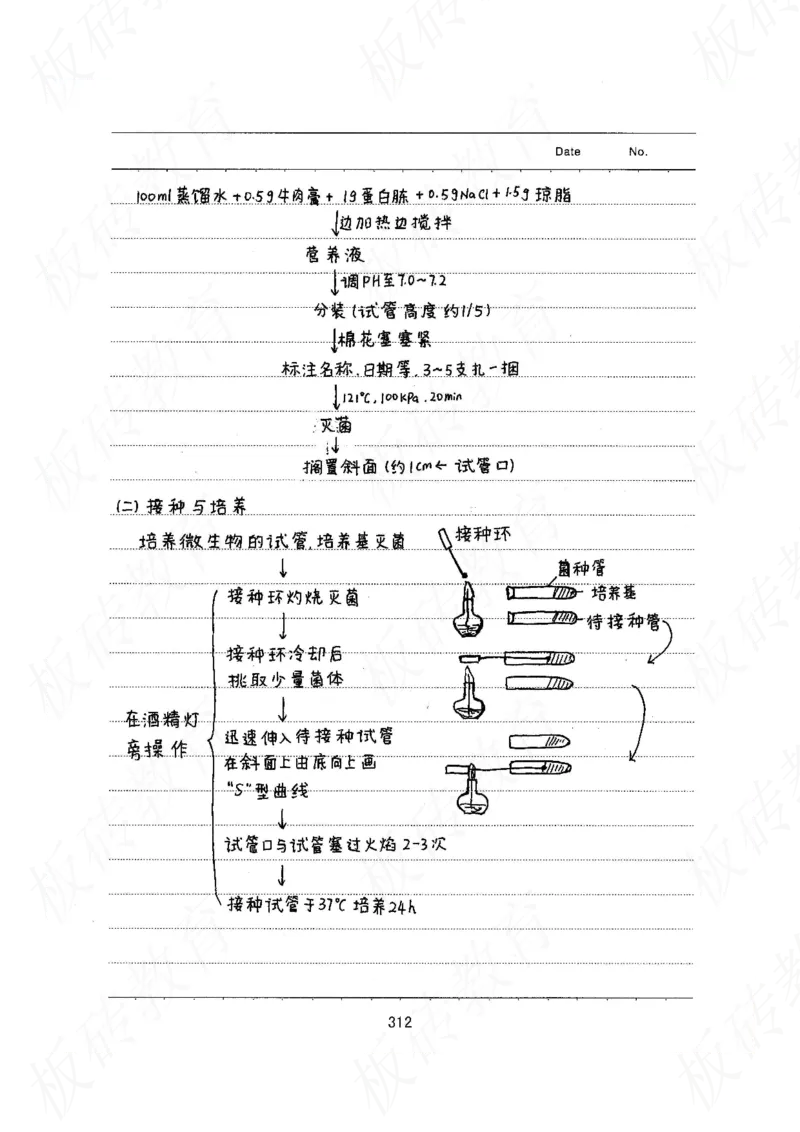 Date No.
100ml蒸馏水+0.5g牛肉膏+1g蛋白胨+0.5gNaCl+1.5g琼脂
↓边加热边搅拌
营养液
↓调PH至7.0~7.2
分装(试管高度约1/5)
↓棉花塞塞紧
标注名称、日期等,3~5支扎一捆
↓121℃,100kPa.20min
灭菌
↓
搁置斜面(约1cm←试管口)
(二)接种与培养
培养微生物的试管,培养基灭菌
接种环
↓
菌种管
接种环灼烧灭菌
培养基
待接种管
↓
接种环冷却后
挑取少量菌体
↓
在酒精灯
旁操作
迅速伸入待接种试管
在斜面上由底向上画
"S"型曲线
↓
试管口与试管塞过火焰2-3次
↓
接种试管于37℃培养24h
312
板砖教育